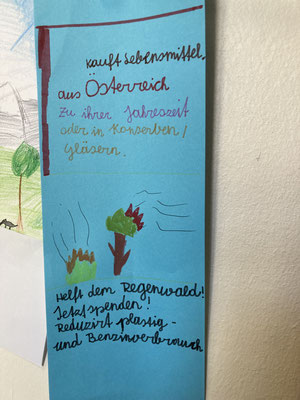 Kauft Lebensmittel,
aus Österreich
Zu ihrer Jahreszeit
oder in Konserven/
Gläsern.
Helft dem Regenwald!
Jetzt spenden!
Reduzirt plastig-
und Benzinverbrauch